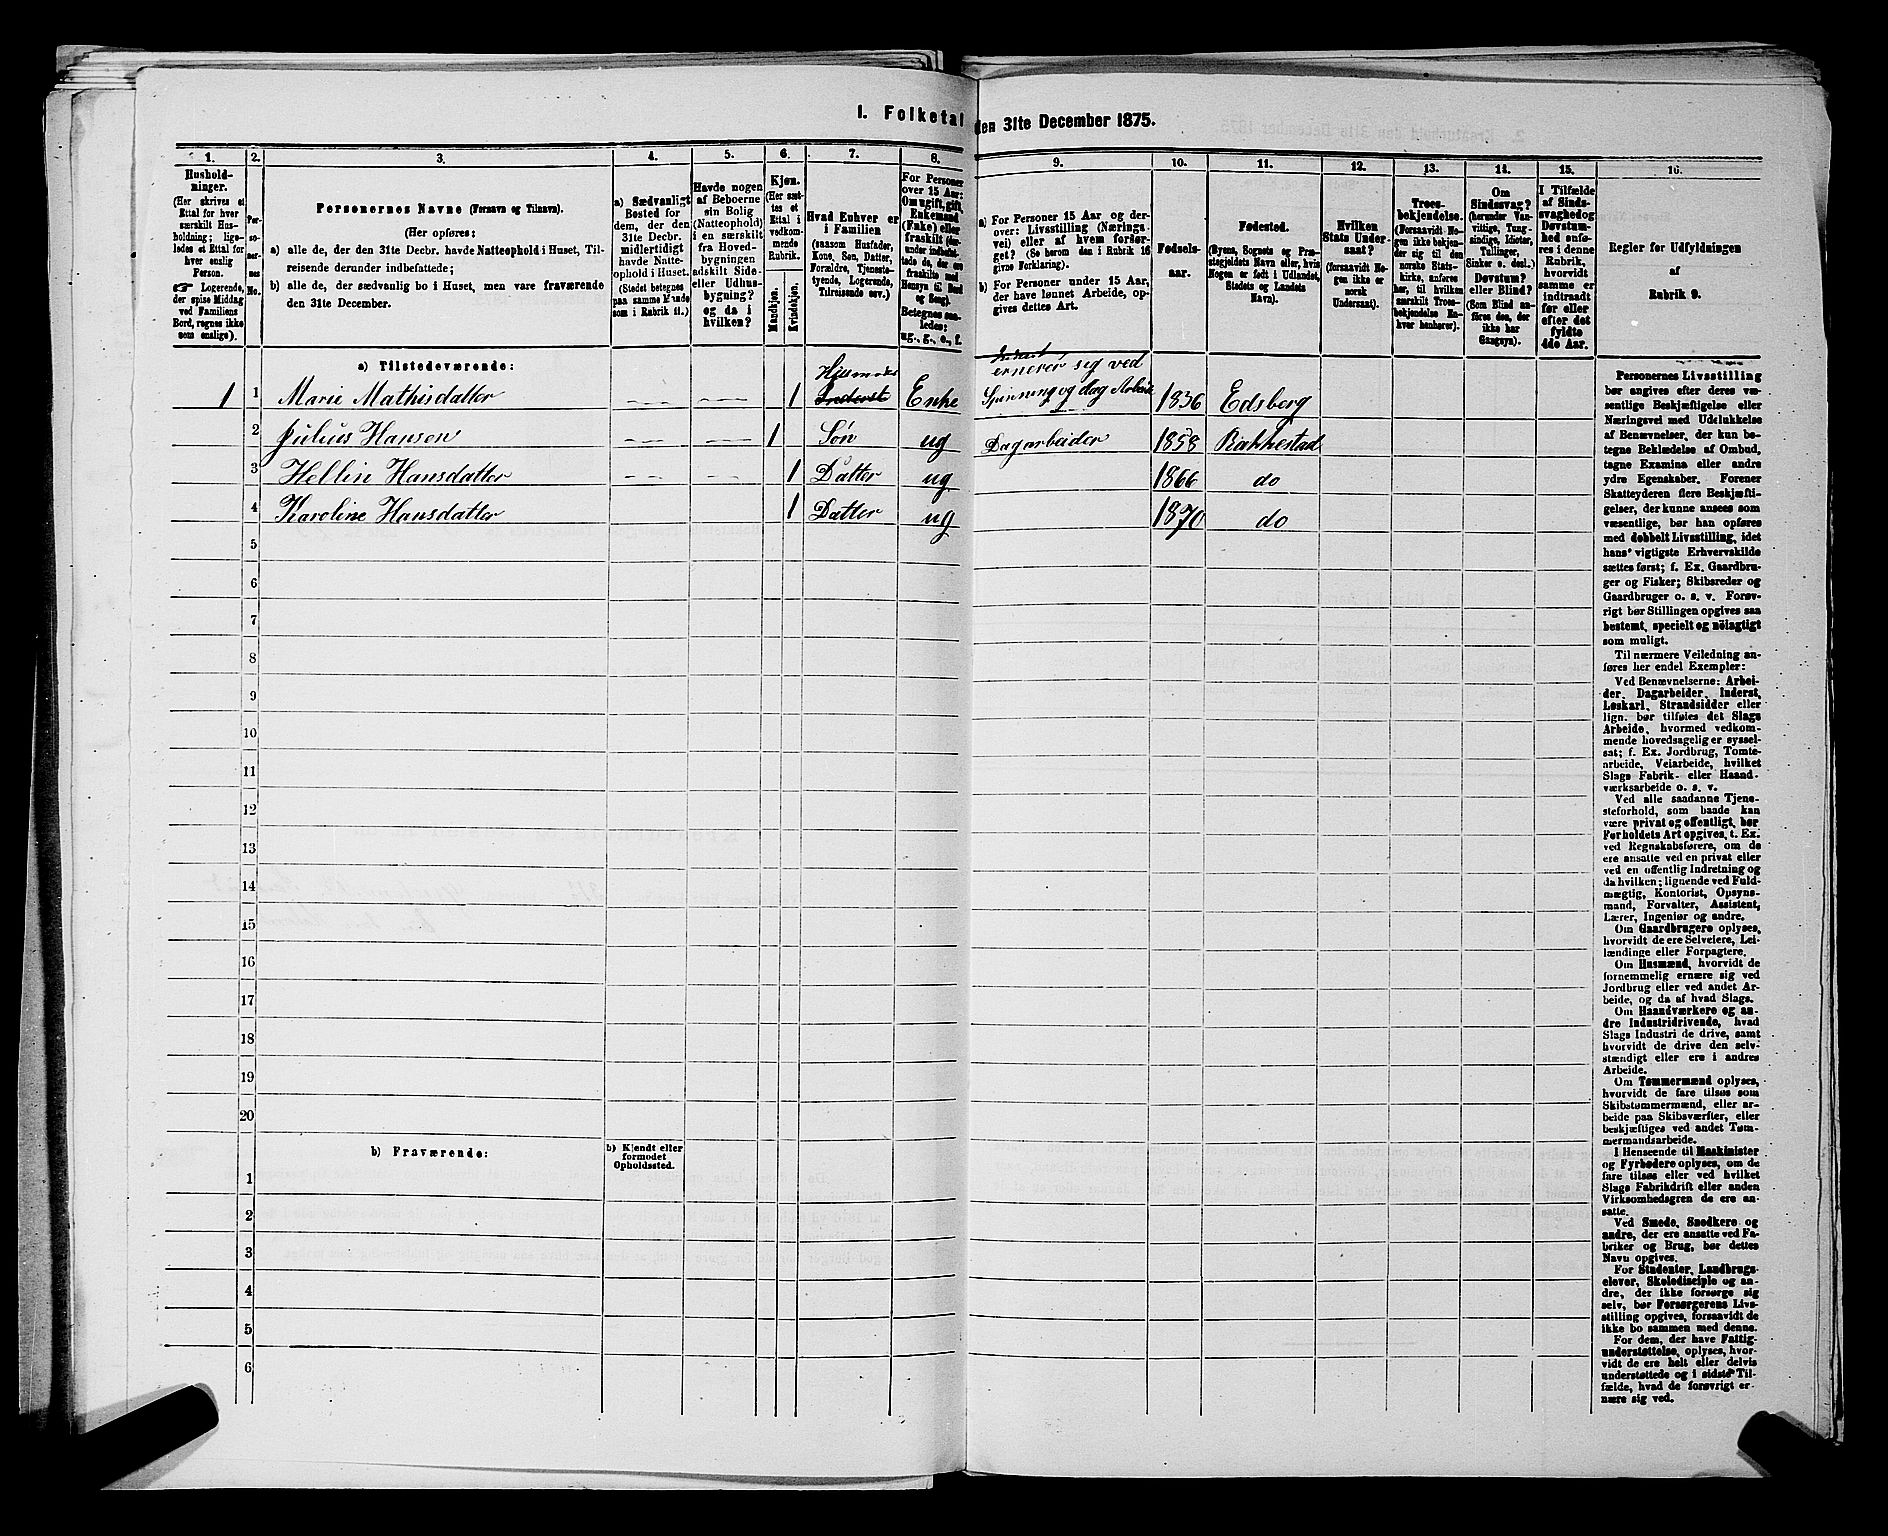 I. Folketal den 31te December 1875.
1. 2. 3. 4. 5. 6. 7. 8. 9. 10. 11. 12. 13. 14. 15. 16.
Hushold-
ninger.
(Her skrives et
Ettal for hver
særskilt Hus-
holdning; lige-
ledes et Ettal for
hver enslig
Person.
Logerende,
der spise Middag
ved Familiens
Bord, regnes ikke
som enslige).
Per-
so-
ner-
nes
No.
Personernes Navne (Fornavn og Tilnavn).
(Her opføres:
a) alle de, der den 31te Decbr. havde Natteophold i Huset, Til-
reisende derunder indbefattede;
b) alle de, der sædvanlig bo i Huset, men vare fraværende
den 31te December.
a) Sædvanligt
Bosted for
dem, der den
31te Decbr.
midlertidigt
havde Natte-
ophold i Huset.
(Stedet betegnes
paa samme Maade
som i Rubrik 11.)
Havde nogen
af Beboerne
sin Bolig
(Natteophold)
i en særskilt
fra Hoved-
bygningen
adskilt Side-
eller Udhus-
bygning?
og da i
hvilken?
Kjøn.
(Her sæt-
tes et
Ettal i
vedkom-
mende
Rubrik.
Mandkjøn.
Kvindekjøn.
Hvad Enhver er
i Familien
(saasom Husfader,
Kone, Søn, Datter,
Forældre, Tjeneste-
tyende, Logerende,
Tilreisende osv.)
For Personer
over 15 Aar:
Om ugift, gift,
Enkemand
(Enke) eller
fraskilt (der-
under indbefat-
tede de, der ere
fraskilte med
Hensyn til Bord
og Seng).
Betegnes saa-
ledes:
ug., g., e., f.
a) For Personer 15 Aar og der-
over: Livsstilling (Nærings-
vei) eller af hvem forsør-
get? (Se herom den i Rubrik 16
givne Forklaring).
b) For Personer under 15 Aar,
der have lønnet Arbeide, op-
gives dettes Art.
Fødsels-
aar.
Fødested.
(Byens, Sognets og Præ-
stegjeldets Navn eller, hvis
Nogen er født i Udlandet,
Stedets og Landets
Navn).
Hvilken
Stats Under-
saat?
(forsaavidt No-
gen ikke er
norsk
Undersaat).
Troes-
bekjendelse.
(Forsaavidt No-
gen ikke bekjen-
der sig til den
norske Stats-
kirke, anføres
her, til hvilken
særskilt Troes-
bekjendelse En-
hver henhører).
Om
Sindssvag?
(herunder Van-
vittige, Tung-
sindige, Idioter,
Tullinger,
Sinker o. desl.)
Døvstum?
eller Blind?
(Som Blind an-
føres den, der
ikke har
Gangsyn).
I Tilfælde
af Sinds-
svaghed og
Døvstum-
hed anfø-
res i denne
Rubrik,
hvorvidt
samme er
indtraadt
før eller
efter det
fyldte
4de Aar.
Regler for Udfyldningen
af
Rubrik 9.
a) Tilstedeværende:
1 1 Marie Mathisdatter 1 Husmoder Inderst Enke ernerer sig ved Spinning og dag Arbeide 1836 Edsberg
2 Julius Hansen 1 Søn ug Dagarbeider 1858 Rakkestad
3 Helline Hansdatter 1 Datter ug 1866 do
4 Karoline Hansdatter 1 Datter ug 1870 do
5
6
7
8
9
10
11
12
13
14
15
16
17
18
19
20
b) Fraværende:
b) Kjendt eller
formodet
Opholdssted.
1
2
3
4
5
6
Personernes Livsstilling
bør angives efter deres væ-
sentlige Beskjæftigelse eller
Næringsvei med Udelukkelse
af Benævnelser, der kun be-
tegne Beklædelse af Ombud,
tagne Examina eller andre
ydre Egenskaber. Forener
Skatteyderen flere Beskjæfti-
gelser, der kunne ansees som
væsentlige, bør han opføres
med dobbelt Livsstilling, idet
hans vigtigste Erhvervskilde
sættes først; f. Ex. Gaardbru-
ger og Fisker; Skibsreder og
Gaardbruger o. s. v. Forøv-
rigt bør Stillingen opgives saa
bestemt, specielt og nöiagtigt
som muligt.
Til nærmere Veiledning an-
føres her endel Exempler:
Ved Benævnelserne: Arbei-
der, Dagarbeider, Inderst,
Løskarl, Strandsidder eller
lign. bør tilføies det Slags
Arbeide, hvormed vedkom-
mende hovedsagelig er syssel-
sat; f. Ex. Jordbrug, Tomte-
arbeide, Veiarbeide, hvilket
Slags Fabrik- eller Haand-
værksarbeide o. s. v.
Ved alle saadanne Tjene-
steforhold, som baade kan
være privat og offentligt, bør
Forholdets Art opgives, t. Ex.
ved Regnskabsførere, om de
ere ansatte ved en privat eller
ved en offentlig Indretning og
da hvilken; lignende ved Fuld-
mægtig, Kontorist, Opsyns-
mand, Forvalter, Assistent,
Lærer, Ingeniør og andre.
Om Gaardbrugere oplyses,
hvorvidt de ere Selveiere, Lei-
lændinge eller Forpagtere.
Om Husmænd, hvorvidt de
fornemmelig ernære sig ved
Jordbrug eller ved andet Ar-
beide, og da af hvad Slags.
Om Haandværkere og an-
dre Industridrivende, hvad
Slags Industri de drive, samt
hvorvidt de drive den selv-
stændigt eller ere i andres
Arbeide.
Om Tømmermænd oplyses,
hvorvidt de fare tilsøs som
Skibstømmermænd, eller ar-
beide paa Skibsværfter, eller
beskjæftiges ved andet Tøm-
mermandsarbeide.
I Henseende til Maskinister
og Fyrbødere oplyses, om de
fare tilsøs eller ved hvilket
Slags Fabrikdrift eller anden
Virksomhedsgren de ere an-
satte.
Ved Smede, Snedkere og
andre, der ere ansatte ved Fa-
briker og Brug, bør dettes
Navn opgives.
For Studenter, Landbrugs-
elever, Skoledisciple og an-
dre, der ikke forsørge sig
selv, bør Forsørgerens Livs-
stilling opgives, forsaavidt de
ikke bo sammen med denne.
For dem, der have Fattig-
understøttelse, oplyses, hvor-
vidt de ere helt eller delvis
understøttede og i sidste Til-
fælde, hvad de forøvrigt er-
nære sig ved.